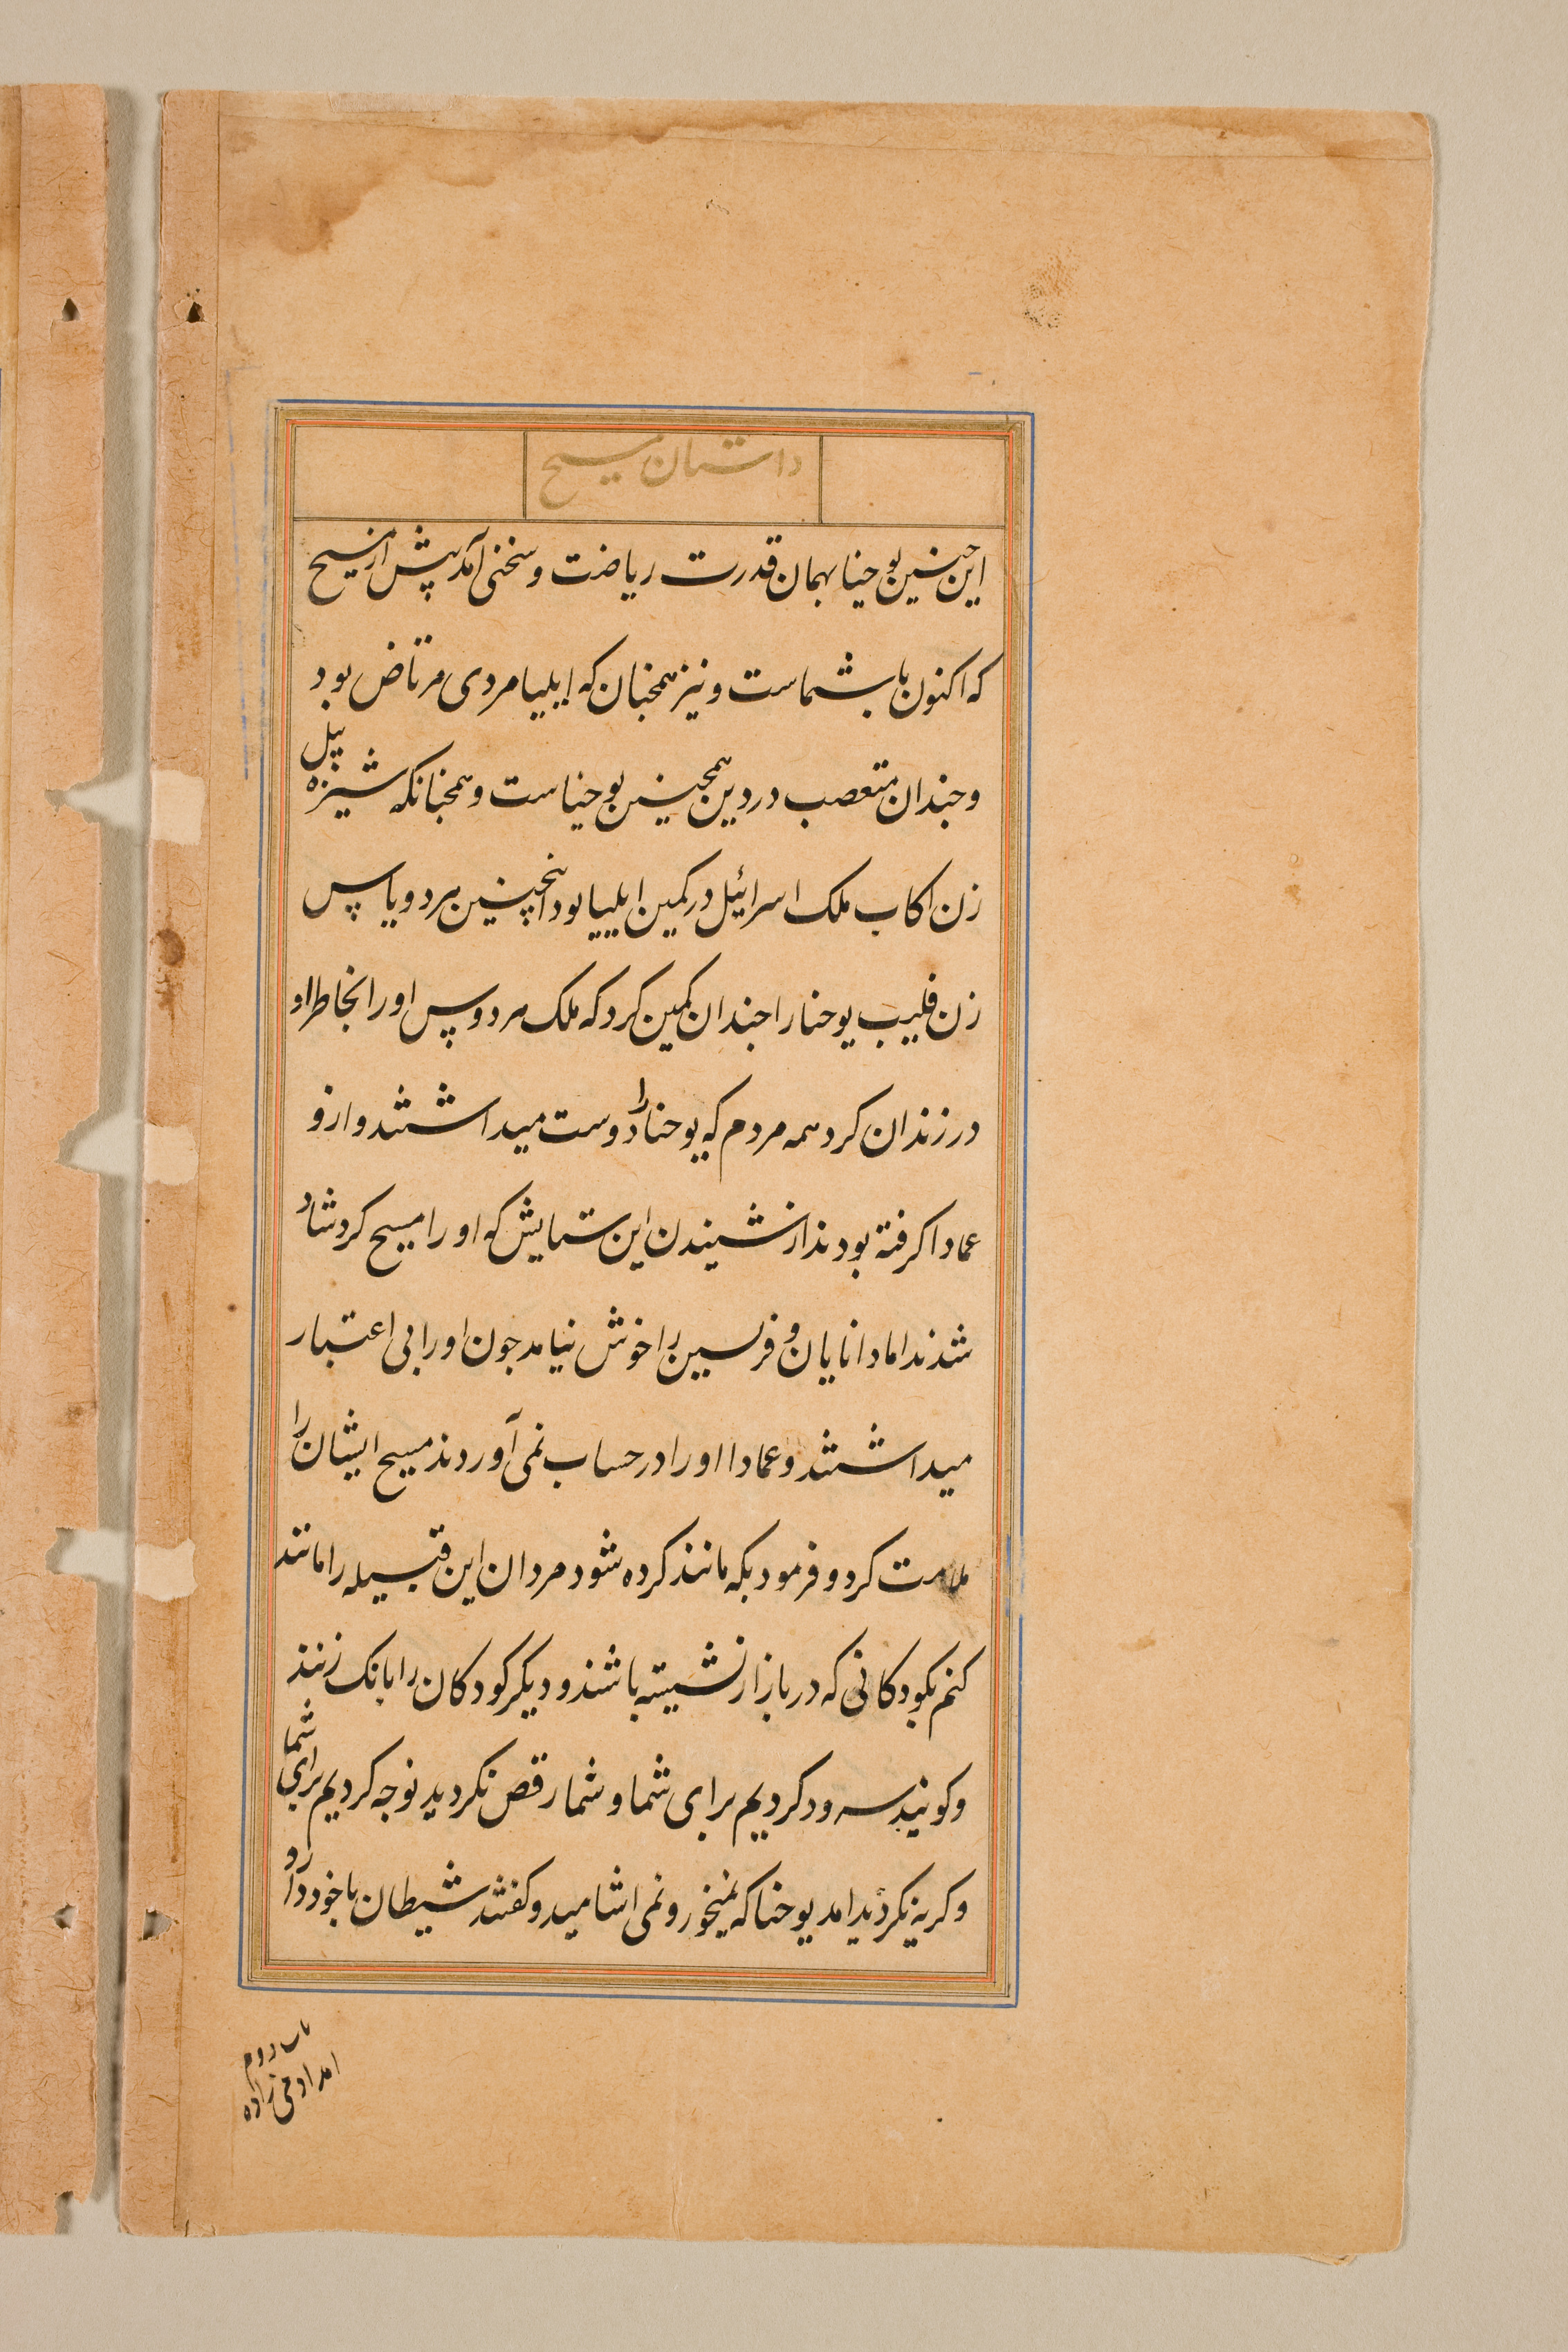 داستان مسیح
این چنین یوحنا بهمان قدرت ریاضت و سختی آمد پیش از مسیح
که اکنون با شماست و نیز همچنان که ایلیا مردی مرتاض بود
و چندان متعصب در دین همچنین یوحناست و همچنانکه شیزه پل
زن اکاب ملک اسرائیل در کمین ایلییا بود انچنین هردویاس
زن فلیب یوحنا را چندان کمین کرد که ملک هردوس او را بخاطر او
در زندان کرد همه مردم که یوحنا را دوست میداشتند و ازو
عمادا کرفته بودند از شنیدن این ستایش که او را مسیح کرد شاد
شدند اما دانایان و فرسین را خوش نیامد چون او را بی اعتبار
میداشتند و عمادا او را در حساب نمی آوردند مسیح ایشان را
ملامت کرد و فرمود بکه مانند کرده شود مردان این قبیله را مانند
کنم بکودکانی که در بازار نشیته باشند و دیکر کودکان را بانک زنند
و کویند سرود کردیم برای شما و شما رقص نکردید نوحه کردیم برای شما
و کریه نکردید امد یوحنا که نمیخورد و نمی اشامید و کفتند شیطان با خود دارد
باب دوم
امد ادمی زاده